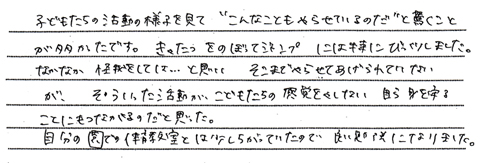 子どもたちの活動の様子を見て “こんなこともやらせているのだ”と驚くこと
が多かったです。きゃたつをのぼってジャンプ には特にびっくりしました。
なかなか 怪我をしては…と思い そこまでやらせてあげられていない
が、そういった活動が、こどもたちの感覚をやしない 自ら身を守る
ことにもつながるのだと思った。
自分の園での体操教室とは少しちがっていたので 良い見 になりました。